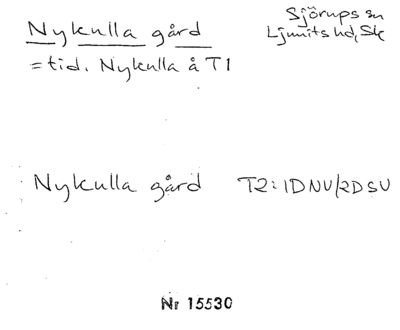 Nykulla gård
Sjörups sn
Ljunits hd, Sk
= tid. Nykulla å T1
Nykulla gård T2: 1DNV/2DSV
Nr 15530